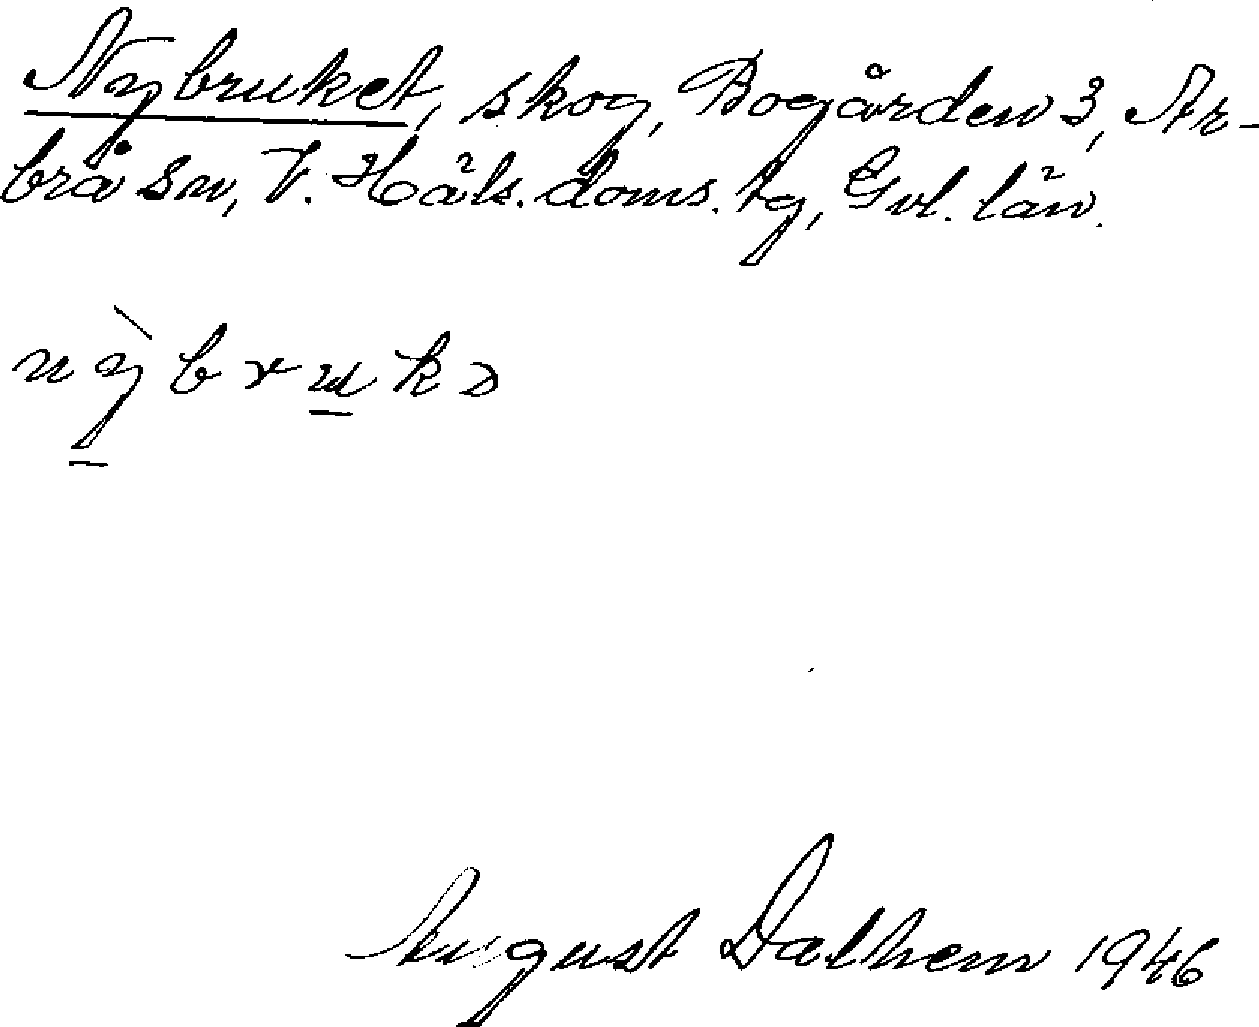 Nybruket, skog, Bogården 3, Ar-
brå sn, V. Häls. doms. tg, Gvl. län.
nỳbrukə
August Dalhem 1946